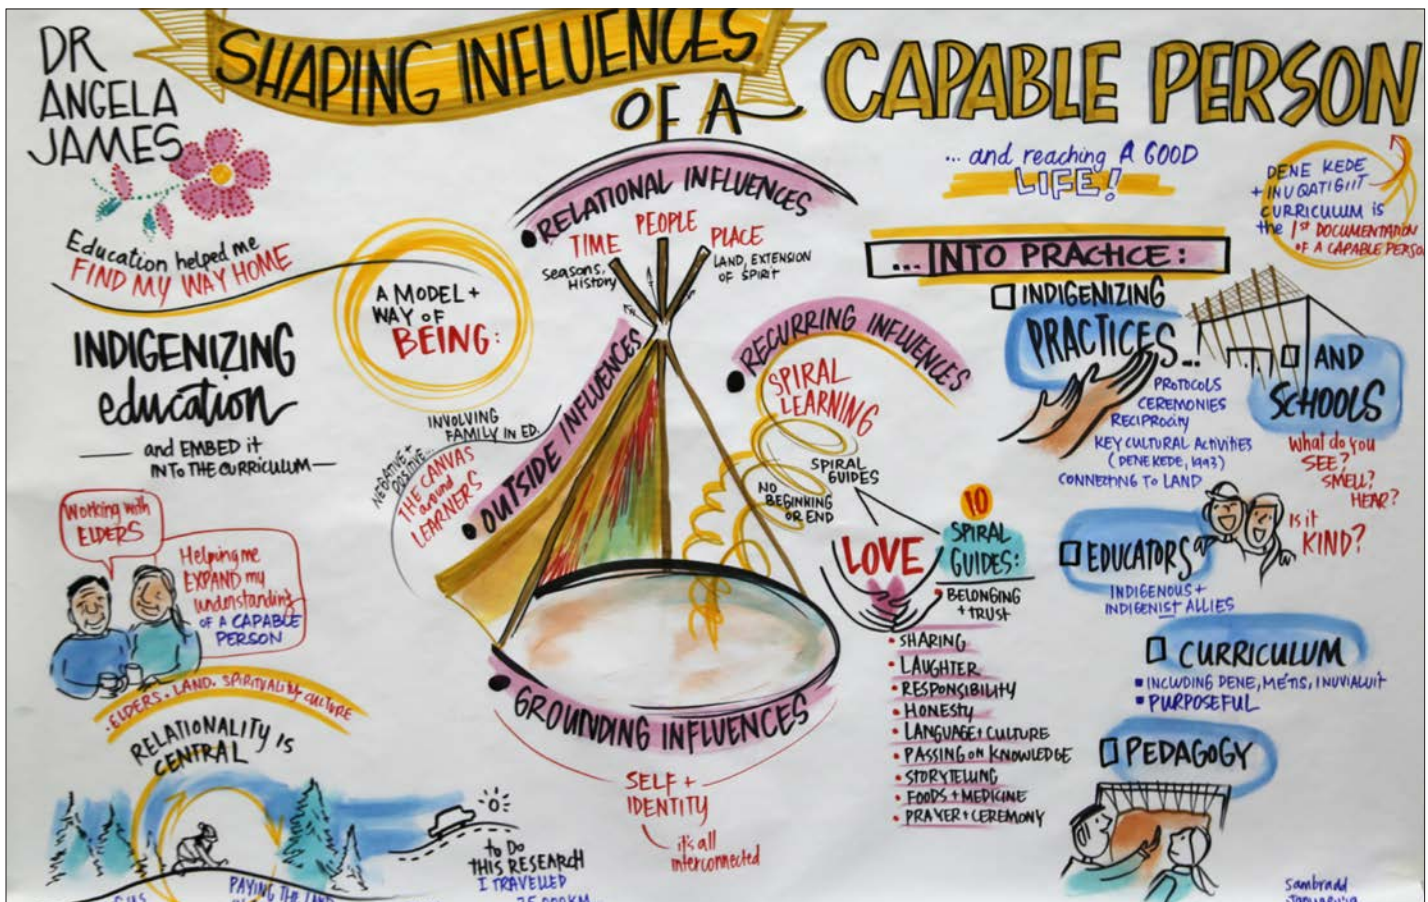 DR
ANGELA
JAMES
SHAPING INFLUENCES
OF A
CAPABLE PERSON
... and reaching A GOOD
LIFE!
DENE KEDE
+ INUQATIGIIT
CURRICULUM is
the 1ST DOCUMENTATION
OF A CAPABLE PERSON
Education helped me
FIND MY WAY HOME
INDIGENIZING
education
and EMBED it
INTO THE CURRICULUM
Working with
ELDERS
Helping me
EXPAND my
understanding
OF A CAPABLE
PERSON
ELDERS. LAND. SPIRITUALITY. CULTURE
RELATIONALITY IS
CENTRAL
PAYING THE LAND
to DO
THIS RESEARCH
I TRAVELLED
A MODEL +
WAY OF
BEING:
RELATIONAL INFLUENCES
TIME
seasons,
History
PEOPLE
PLACE
LAND, EXTENSION
OF SPIRIT
OUTSIDE INFLUENCES
INVOLVING
FAMILY IN ED.
NEGATIVE +
POSITIVE...
THE CANVAS
around
LEARNERS
RECURRING INFLUENCES
SPIRAL
LEARNING
SPIRAL
GUIDES
NO
BEGINNING
OR END
LOVE
10
SPIRAL
GUIDES:
• BELONGING
+ TRUST
• SHARING
• LAUGHTER
• RESPONSIBILITY
• HONESTY
• LANGUAGE + CULTURE
• PASSING ON KNOWLEDGE
• STORYTELLING
• FOODS + MEDICINE
• PRAYER + CEREMONY
GROUNDING INFLUENCES
SELF +
IDENTITY
it's all
interconnected
... INTO PRACTICE:
INDIGENIZING
PRACTICES...
PROTOCOLS
CEREMONIES
RECIPROCITY
KEY CULTURAL ACTIVITIES
(DENE KEDE, 1993)
CONNECTING TO LAND
AND
SCHOOLS
What do you
SEE?
SMELL?
HEAR?
Is it
KIND?
EDUCATORS
INDIGENOUS +
INDIGENIST ALLIES
CURRICULUM
▪ INCLUDING DENE, MÉTIS, INUVIALUIT
▪ PURPOSEFUL
PEDAGOGY
Sambradd